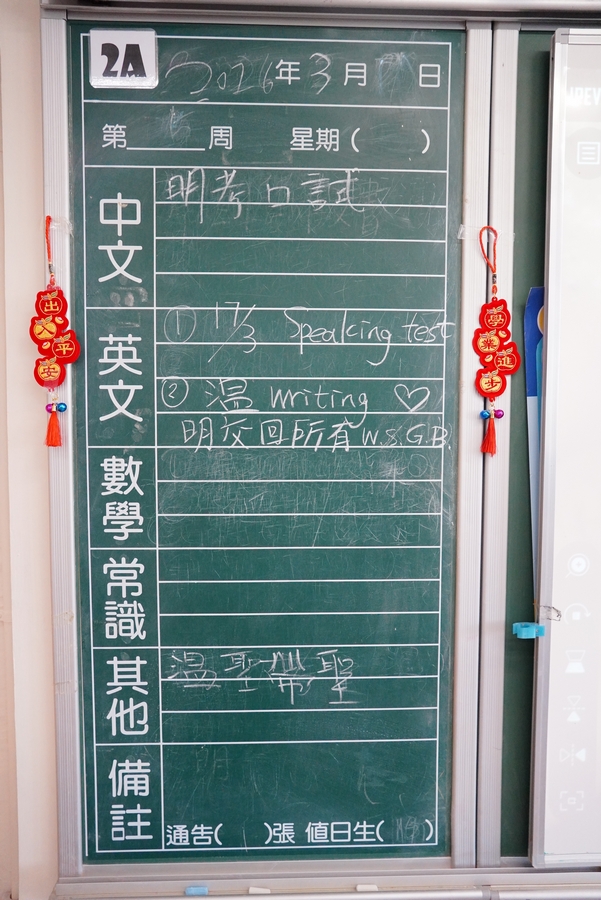 2A
2026年3月 日
第 周 星期( )
中文
明考口試
英文
① 17/3 Speaking test
② 温 writing ♡
明交回所有 W.S.G.B.
數學
常識
其他
温聖 帶聖
備註
通告( )張 值日生( )
出入平安
學業進步